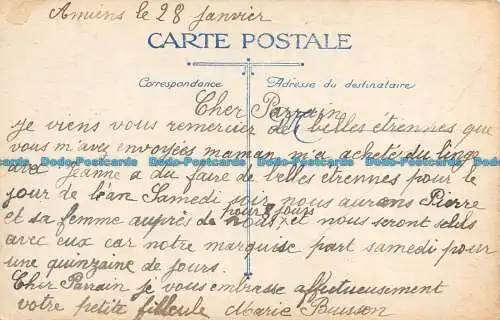 Amiens le 28 janvier
CARTE POSTALE
Correspondance Adresse du destinataire
Cher Parrain
Je viens vous remercier de belles étrennes que
vous m'avez envoyées maman m'a acheté du linge
avec Jeanne a du faire de belles étrennes pour le
jour de l'an Samedi soir nous aurons Pierre
et sa femme auprès de nous pour 8 jours et nous seront seuls
avec eux car notre marquise part samedi pour
une quinzaine de jours.
Cher Parrain je vous embrasse affectueusement
votre petite filleule Marie Buisson
Dodo-Postcards Dodo-Postcards Dodo-Postcards Dodo-Postcards Dodo-Postcards